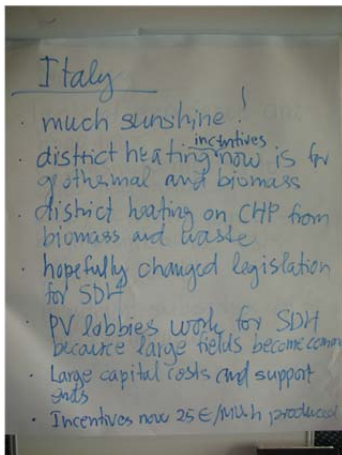 Italy
· much sunshine!
· district heating incentives now is for
geothermal and biomass
· district heating on CHP from
biomass and waste
· hopefully changed legislation
for SDH
· PV lobbies work for SDH
because large fields become common
· Large capital costs and support
ends
· Incentives now 25 €/MWh produced